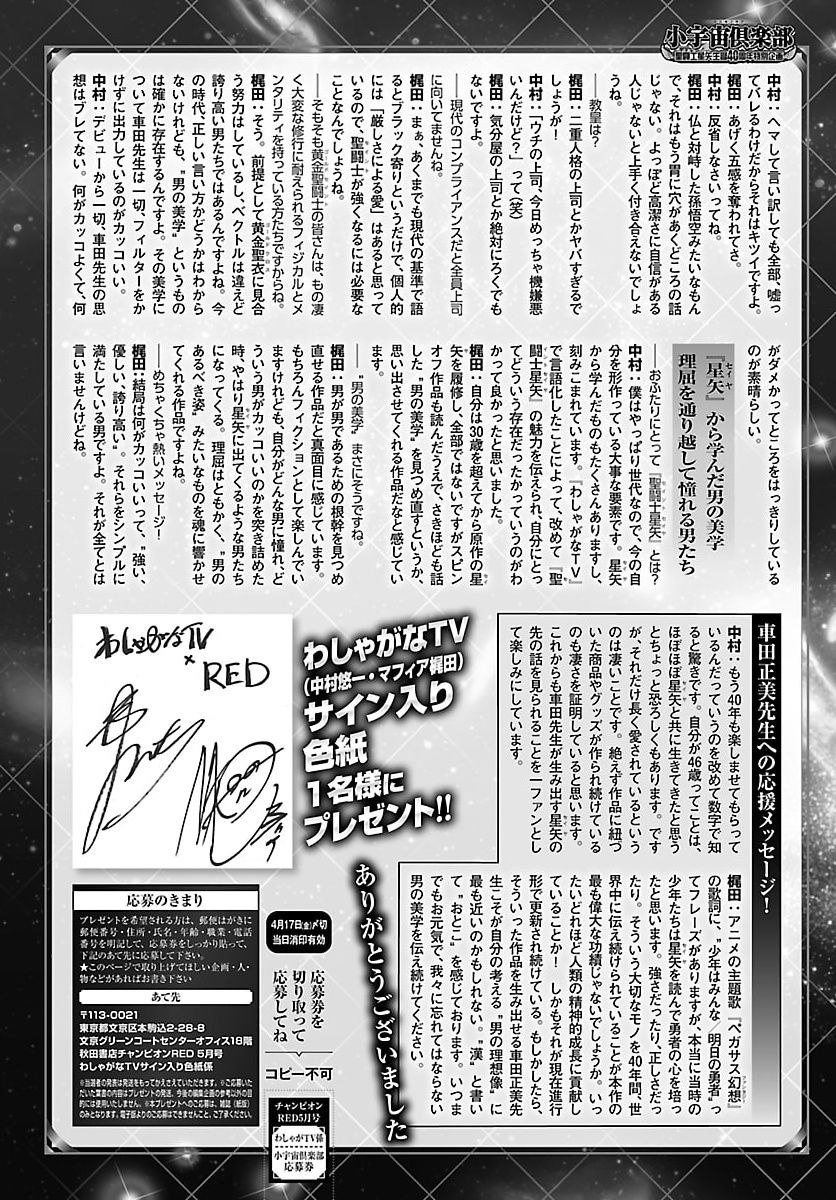 小宇宙倶楽部
聖闘士星矢生誕40周年特別企画
中村：ヘマして言い訳しても全部、嘘っ
てバレるわけだからそれはキツイですよ。
梶田：あげく五感を奪われてさ。
中村：反省しなさいってね。
梶田：仏と対峙した孫悟空みたいなもん
で、それはもう胃に穴があくどころの話
じゃない。よっぽど高潔さに自信がある
人じゃないと上手く付き合えないでしょ
うね。
――教皇は？
梶田：二重人格の上司とかヤバすぎるで
しょうが！
中村：「ウチの上司、今日めっちゃ機嫌悪
いんだけど？」って（笑）
梶田：気分屋の上司とか絶対にろくでも
ないですよ。
――現代のコンプライアンスだと全員上司
に向いてませんね。
梶田：まぁ、あくまでも現代の基準で語
るとブラック寄りというだけで、個人的
には「厳しさによる愛」はあると思って
いるので、聖闘士が強くなるには必要な
ことなんでしょうね。
――そもそも黄金聖闘士の皆さんは、もの凄
く大変な修行に耐えられるフィジカルとメ
ンタリティを持っている方たちですからね。
梶田：そう。前提として黄金聖衣に見合
う努力はしているし、ベクトルは違えど
誇り高い男たちではあるんですよね。今
の時代、正しい言い方かどうかはわから
ないけれども、〝男の美学〟というもの
は確かに存在するんですよ。その美学に
ついて車田先生は一切、フィルターをか
けずに出力しているのがカッコいい。
中村：デビューから一切、車田先生の思
想はブレてない。何がカッコよくて、何
がダメかってところをはっきりしている
のが素晴らしい。
『星矢』から学んだ男の美学
理屈を通り越して憧れる男たち
――おふたりにとって『聖闘士星矢』とは？
中村：僕はやっぱり世代なので、今の自
分を形作っている大事な要素です。星矢
から学んだものもたくさんありますし、
刻みこまれています。『わしゃがなTV』
で言語化したことによって、改めて『聖
闘士星矢』の魅力を伝えられ、自分にとっ
てどういう存在だったかっていうのがわ
かって良かったと思いました。
梶田：自分は30歳を超えてから原作の星
矢を履修し、全部ではないですがスピン
オフ作品も読んだうえで、さきほども話
した〝男の美学〟を見つめ直すというか、
思い出させてくれる作品だなと感じてい
ます。
――〝男の美学〟まさにそうですね。
梶田：男が男であるための根幹を見つめ
直せる作品だと真面目に感じています。
もちろんフィクションとして楽しんでい
ますけれども、自分がどんな男に憧れ、ど
ういう男がカッコいいのかを突き詰めた
時、やはり星矢に出てくるような男たち
になってくる。理屈はともかく、〝男の
あるべき姿〟みたいなものを魂に響かせ
てくれる作品ですよね。
――めちゃくちゃ熱いメッセージ！
梶田：結局は何がカッコいいって、〝強い、
優しい、誇り高い〟。それらをシンプルに
満たしている男ですよ。それが全てとは
言いませんけどね。
車田正美先生への応援メッセージ！
中村：もう40年も楽しませてもらって
いるんだっていうのを改めて数字で知
ると驚きです。自分が46歳ってことは、
ほぼほぼ星矢と共に生きてきたと思う
とちょっと恐ろしくもあります。です
が、それだけ長く愛されているという
のは凄いことです。絶えず作品に紐づ
いた商品やグッズが作られ続けている
のも凄さを証明していると思います。
これからも車田先生が生み出す星矢の
先の話を見られることを一ファンとし
て楽しみにしています。
梶田：アニメの主題歌『ペガサス幻想』
の歌詞に、〝少年はみんな／明日の勇者〟っ
てフレーズがありますが、本当に当時の
少年たちは星矢を読んで勇者の心を培っ
たと思います。強さだったり、正しさだっ
たり。そういう大切なモノを40年間、世
界中に伝え続けられていることが本作の
最も偉大な功績じゃないでしょうか。いっ
たいどれほど人類の精神的成長に貢献し
ていることか！ しかもそれが現在進行
形で更新され続けている。もしかしたら、
そういった作品を生み出せる車田正美先
生こそが自分の考える〝男の理想像〟に
最も近いのかもしれない。〝漢〟と書い
て〝おとこ〟を感じております。いつま
でもお元気で、我々に忘れてはならない
男の美学を伝え続けてください。
わしゃがなTV
×
RED
わしゃがなTV
（中村悠一・マフィア梶田）
サイン入り
色紙
1名様に
プレゼント!!
ありがとうございました
応募のきまり
プレゼントを希望される方は、郵便はがきに
郵便番号・住所・氏名・年齢・職業・電話
番号を明記して、応募券をしっかり貼って、
下記のあて先に応募して下さい。
★このページで取り上げてほしい企画・人・
物などがあればお書き下さい
あて先
〒113-0021
東京都文京区本駒込2-28-8
文京グリーンコートセンターオフィス18階
秋田書店チャンピオンRED 5月号
わしゃがなTVサイン入り色紙係
※当選者の発表は発送をもってかえさせていただきます。※ご応募いた
だいた賞書の内容はプレゼントの発送、今後の編集企画の参考以外の目
的には使用いたしません。※本プレゼントへのご応募は、雑誌（紙版）
のみとなります。電子版よりのご応募はできませんこと、ご了承ください。
4月17日(金)〆切
当日消印有効
応募券を
切り取って
応募してね
コピー不可
チャンピオン
RED5月号
わしゃがTV係
小宇宙倶楽部
応募券